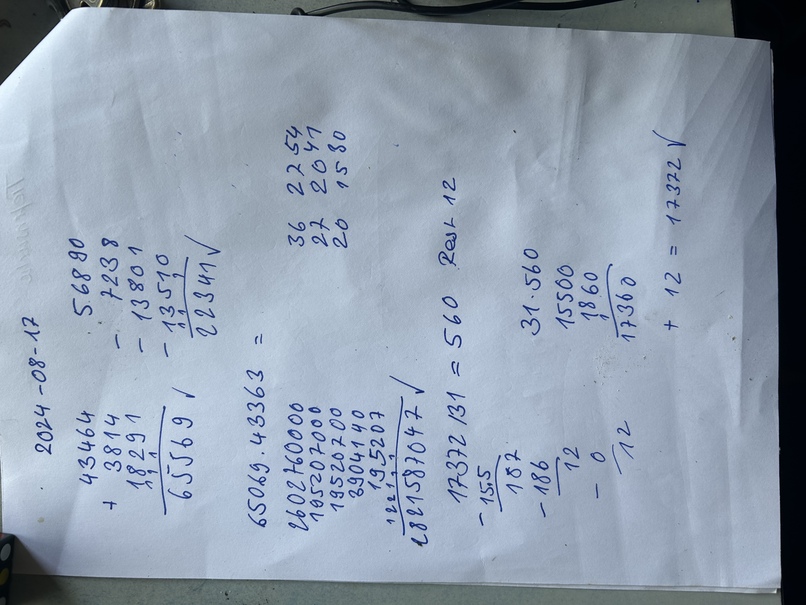 2024-08-17
43464
+ 3814
18291
1 1 1
65569 ✓
56890
- 7238
- 13801
- 13510
1 1 1
22341 ✓
65069 · 43363 =
2602760000
195207000
19520700
3904140
195207
1 2 2 1 1 1
2821587047 ✓
36 2754
27 2041
20 1530
17372 : 31 = 560 Rest 12
- 155
187
- 186
12
- 0
12
31 · 560
15500
1860
1
17360
+ 12 = 17372 ✓